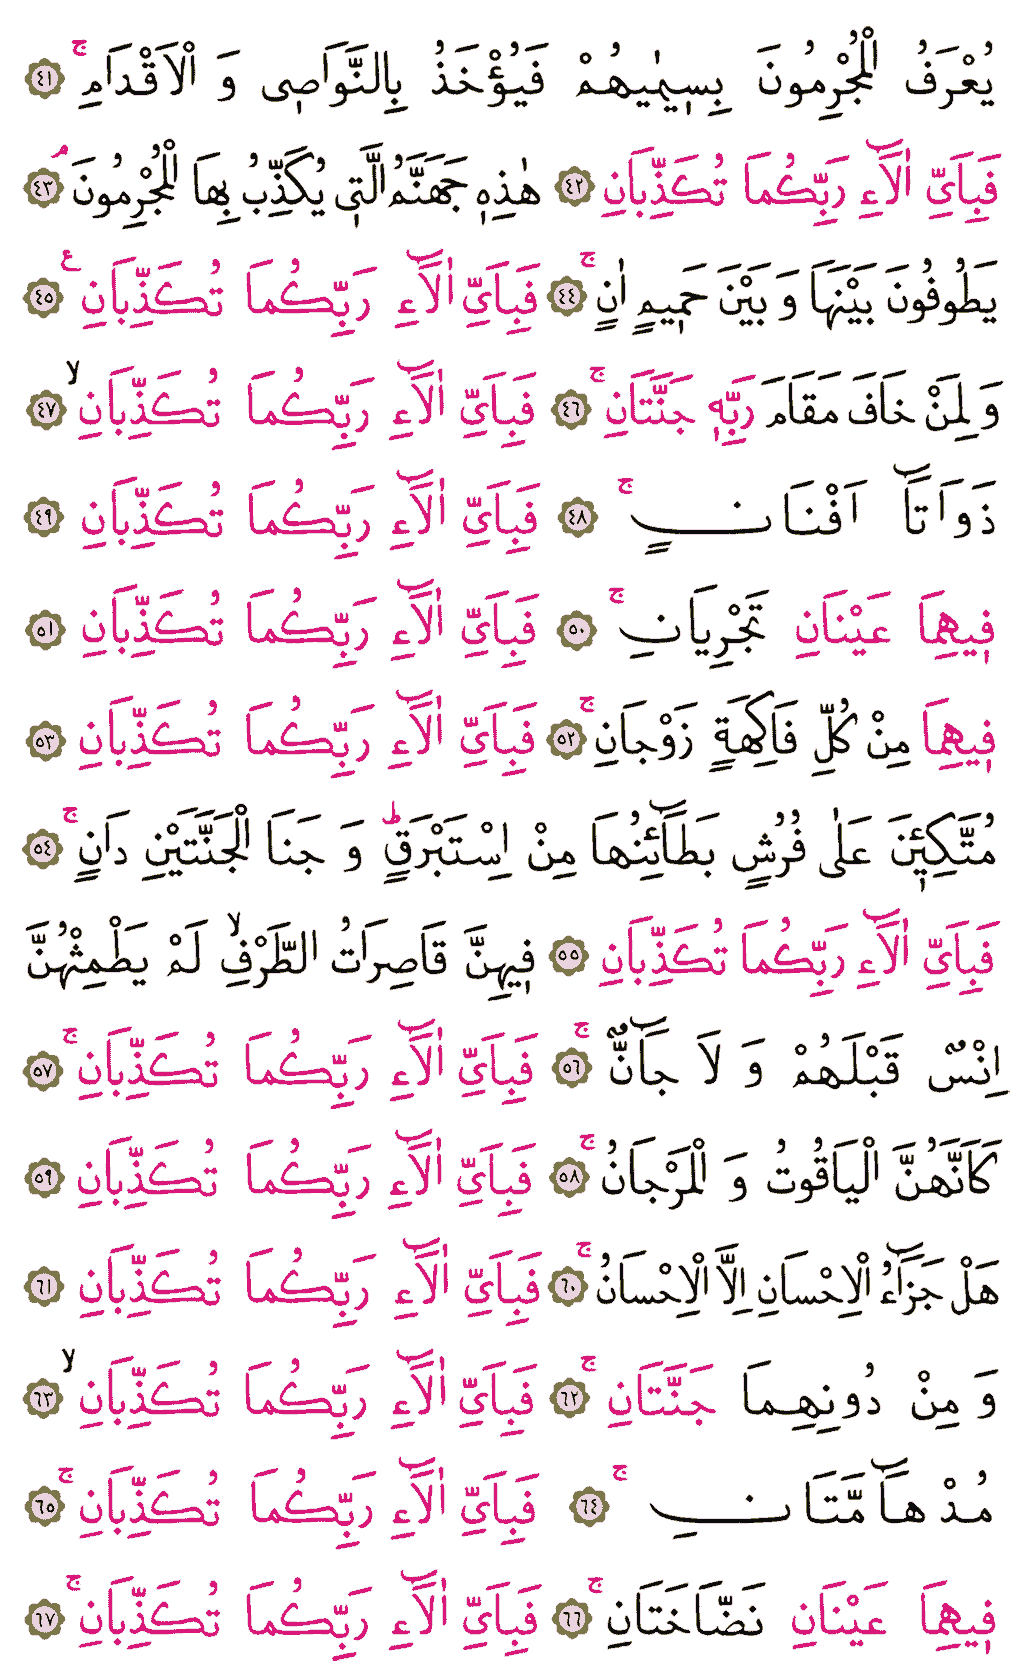 يُعْرَفُ الْمُجْرِمُونَ بِسٖيمٰيهُمْ فَيُؤْخَذُ بِالنَّوَاصٖى وَ الْاَقْدَامِ ۚ ﴿٤١﴾
فَبِاَيِّ اٰلَٓاءِ رَبِّكُمَا تُكَذِّبَانِ ﴿٤٢﴾ هٰذِهٖ جَهَنَّمُ الَّتٖى يُكَذِّبُ بِهَا الْمُجْرِمُونَ ۢ ﴿٤٣﴾
يَطُوفُونَ بَيْنَهَا وَ بَيْنَ حَمٖيمٍ اٰنٍ ۚ ﴿٤٤﴾ فَبِاَيِّ اٰلَٓاءِ رَبِّكُمَا تُكَذِّبَانِ ع ﴿٤٥﴾
وَ لِمَنْ خَافَ مَقَامَ رَبِّهٖ جَنَّتَانِ ۚ ﴿٤٦﴾ فَبِاَيِّ اٰلَٓاءِ رَبِّكُمَا تُكَذِّبَانِ ۙ ﴿٤٧﴾
ذَوَاتَٓا اَفْنَانٍ ۚ ﴿٤٨﴾ فَبِاَيِّ اٰلَٓاءِ رَبِّكُمَا تُكَذِّبَانِ ﴿٤٩﴾
فٖيهِمَا عَيْنَانِ تَجْرِيَانِ ۚ ﴿٥٠﴾ فَبِاَيِّ اٰلَٓاءِ رَبِّكُمَا تُكَذِّبَانِ ﴿٥١﴾
فٖيهِمَا مِنْ كُلِّ فَاكِهَةٍ زَوْجَانِ ۚ ﴿٥٢﴾ فَبِاَيِّ اٰلَٓاءِ رَبِّكُمَا تُكَذِّبَانِ ﴿٥٣﴾
مُتَّكِـٖٔينَ عَلٰى فُرُشٍ بَطَٓائِنُهَا مِنْ اِسْتَبْرَقٍ ؕ وَ جَنَا الْجَنَّتَيْنِ دَانٍ ۚ ﴿٥٤﴾
فَبِاَيِّ اٰلَٓاءِ رَبِّكُمَا تُكَذِّبَانِ ﴿٥٥﴾ فٖيهِنَّ قَاصِرَاتُ الطَّرْفِ ۙ لَمْ يَطْمِثْهُنَّ
اِنْسٌ قَبْلَهُمْ وَ لَا جَٓانٌّ ۚ ﴿٥٦﴾ فَبِاَيِّ اٰلَٓاءِ رَبِّكُمَا تُكَذِّبَانِ ۚ ﴿٥٧﴾
كَاَنَّهُنَّ الْيَاقُوتُ وَ الْمَرْجَانُ ۚ ﴿٥٨﴾ فَبِاَيِّ اٰلَٓاءِ رَبِّكُمَا تُكَذِّبَانِ ﴿٥٩﴾
هَلْ جَزَٓاءُ الْاِحْسَانِ اِلَّا الْاِحْسَانُ ۚ ﴿٦٠﴾ فَبِاَيِّ اٰلَٓاءِ رَبِّكُمَا تُكَذِّبَانِ ﴿٦١﴾
وَ مِنْ دُونِهِمَا جَنَّتَانِ ۚ ﴿٦٢﴾ فَبِاَيِّ اٰلَٓاءِ رَبِّكُمَا تُكَذِّبَانِ ۙ ﴿٦٣﴾
مُدْهَٓامَّتَانِ ۚ ﴿٦٤﴾ فَبِاَيِّ اٰلَٓاءِ رَبِّكُمَا تُكَذِّبَانِ ۚ ﴿٦٥﴾
فٖيهِمَا عَيْنَانِ نَضَّاخَتَانِ ۚ ﴿٦٦﴾ فَبِاَيِّ اٰلَٓاءِ رَبِّكُمَا تُكَذِّبَانِ ۚ ﴿٦٧﴾